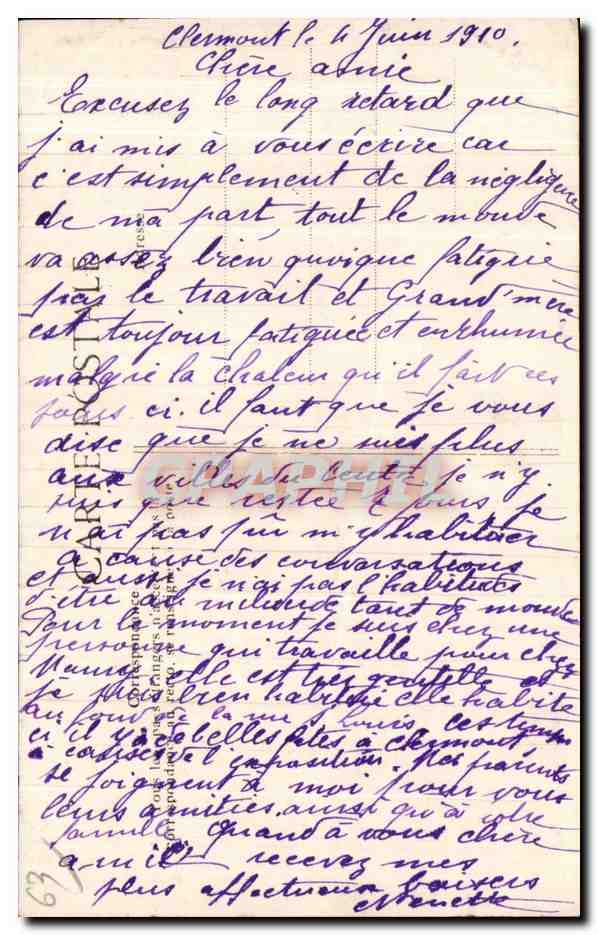 Clermont le 4 Juin 1910.
Chère amie
Excusez le long retard que
j'ai mis à vous écrire car
c'est simplement de la négligence
de ma part, tout le monde
va assez bien quoique fatigué
par le travail et Grand'mère
est toujour fatiguée et enrhumée
malgré la chaleur qu'il fait ces
jours ci. il faut que je vous
dise que je ne suis plus
aux villes du Centre je n'y
suis que restée jours je
n'ai pas pu m'y habituer
à cause des conversations
et aussi je n'ai pas l'habitudes
d'être au milieu de tant de monde
Pour le moment je suis chez une
personne qui travaille pour chez
elle est très gentille et
je suis bien habituée elle habite
au fond de la rue St Louis, ces temps
ci il y a de belles fêtes à Clermont
à causes de l'exposition. Mes parents
se joignent à moi pour vous
leurs amitiés. aussi qu'à votre
famille Quand à vous chère
amie recevez mes
plus affectueux baisers
63
CARTE POSTALE
Correspondance
Adresse
CPAPHIL